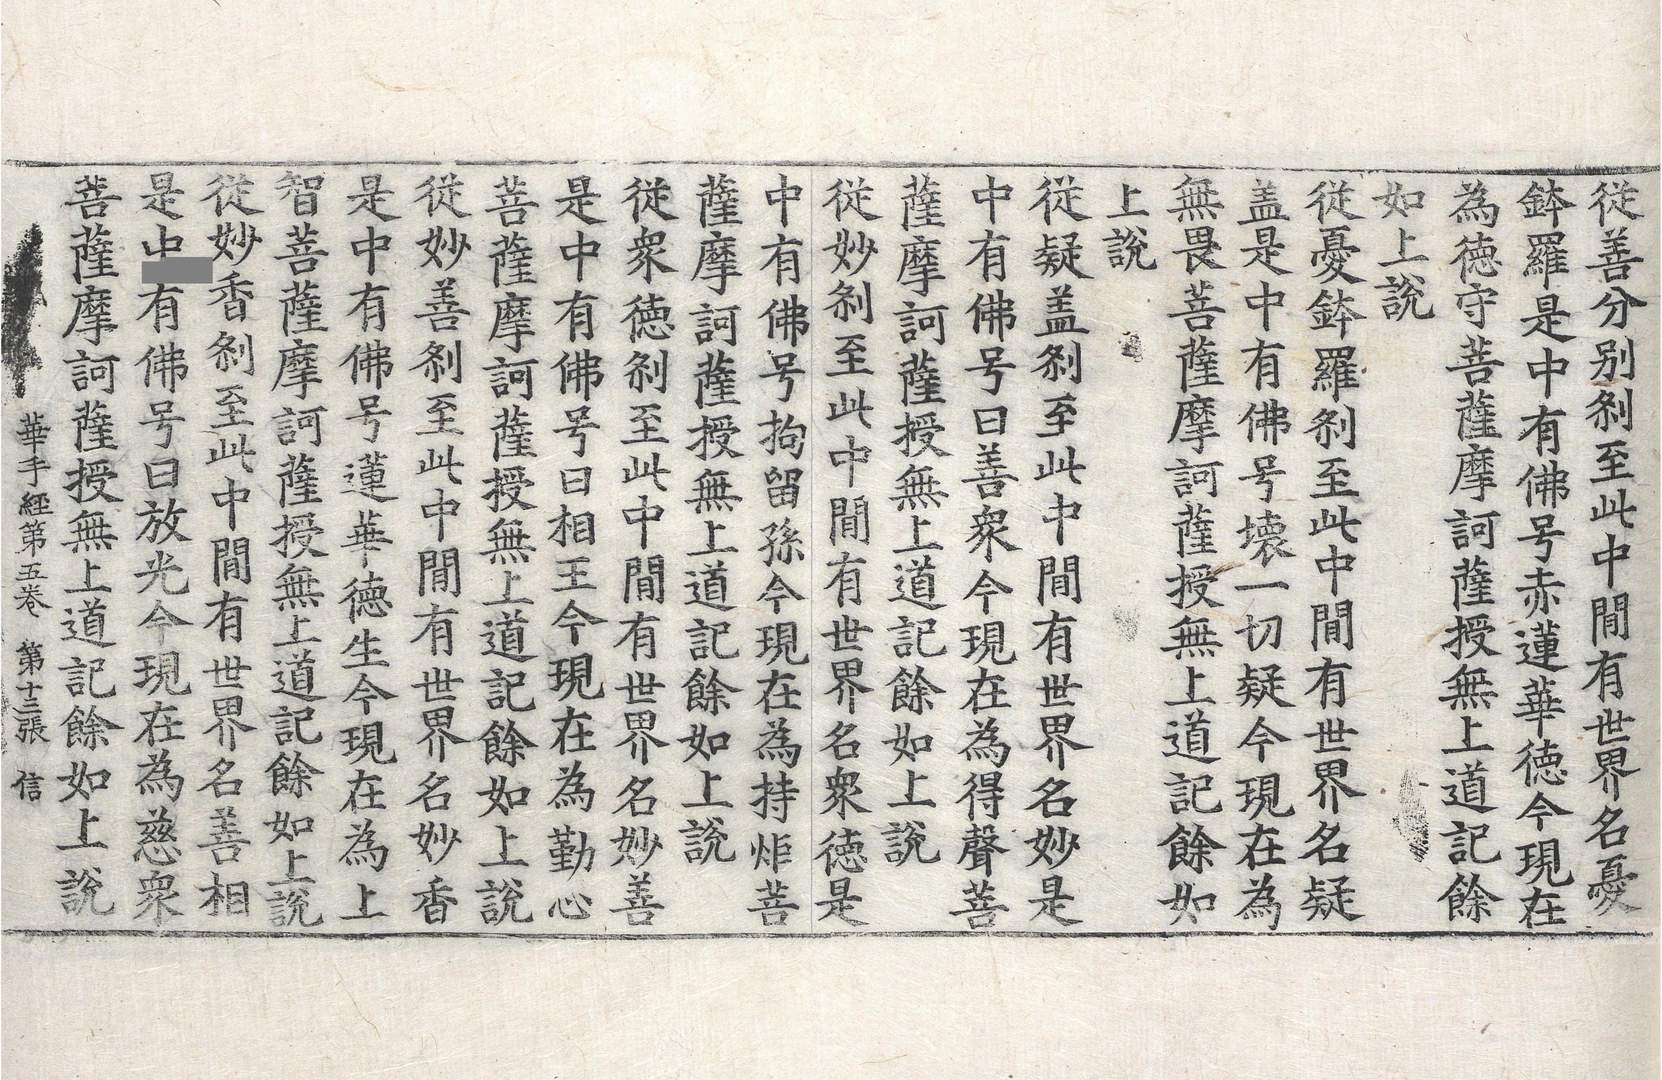 從善分别刹至此中閒有世界名憂
鉢羅是中有佛号赤蓮華德今現在
為德守菩薩摩訶薩授無上道記餘
如上說
從憂鉢羅刹至此中閒有世界名疑
盖是中有佛号壞一切疑今現在為
無畏菩薩摩訶薩授無上道記餘如
上說
從疑盖刹至此中閒有世界名妙是
中有佛号曰善衆今現在為得聲菩
薩摩訶薩授無上道記餘如上說
從妙刹至此中閒有世界名衆德是
中有佛号拘留孫今現在為持炬菩
薩摩訶薩授無上道記餘如上說
從衆德刹至此中閒有世界名妙善
是中有佛号曰相王今現在為勤心
菩薩摩訶薩授無上道記餘如上說
從妙善刹至此中閒有世界名妙香
是中有佛号蓮華德生今現在為上
智菩薩摩訶薩授無上道記餘如上說
從妙香刹至此中閒有世界名善相
是中有佛号曰放光今現在為慈衆
菩薩摩訶薩授無上道記餘如上說
華手經第五卷 第十三張 信